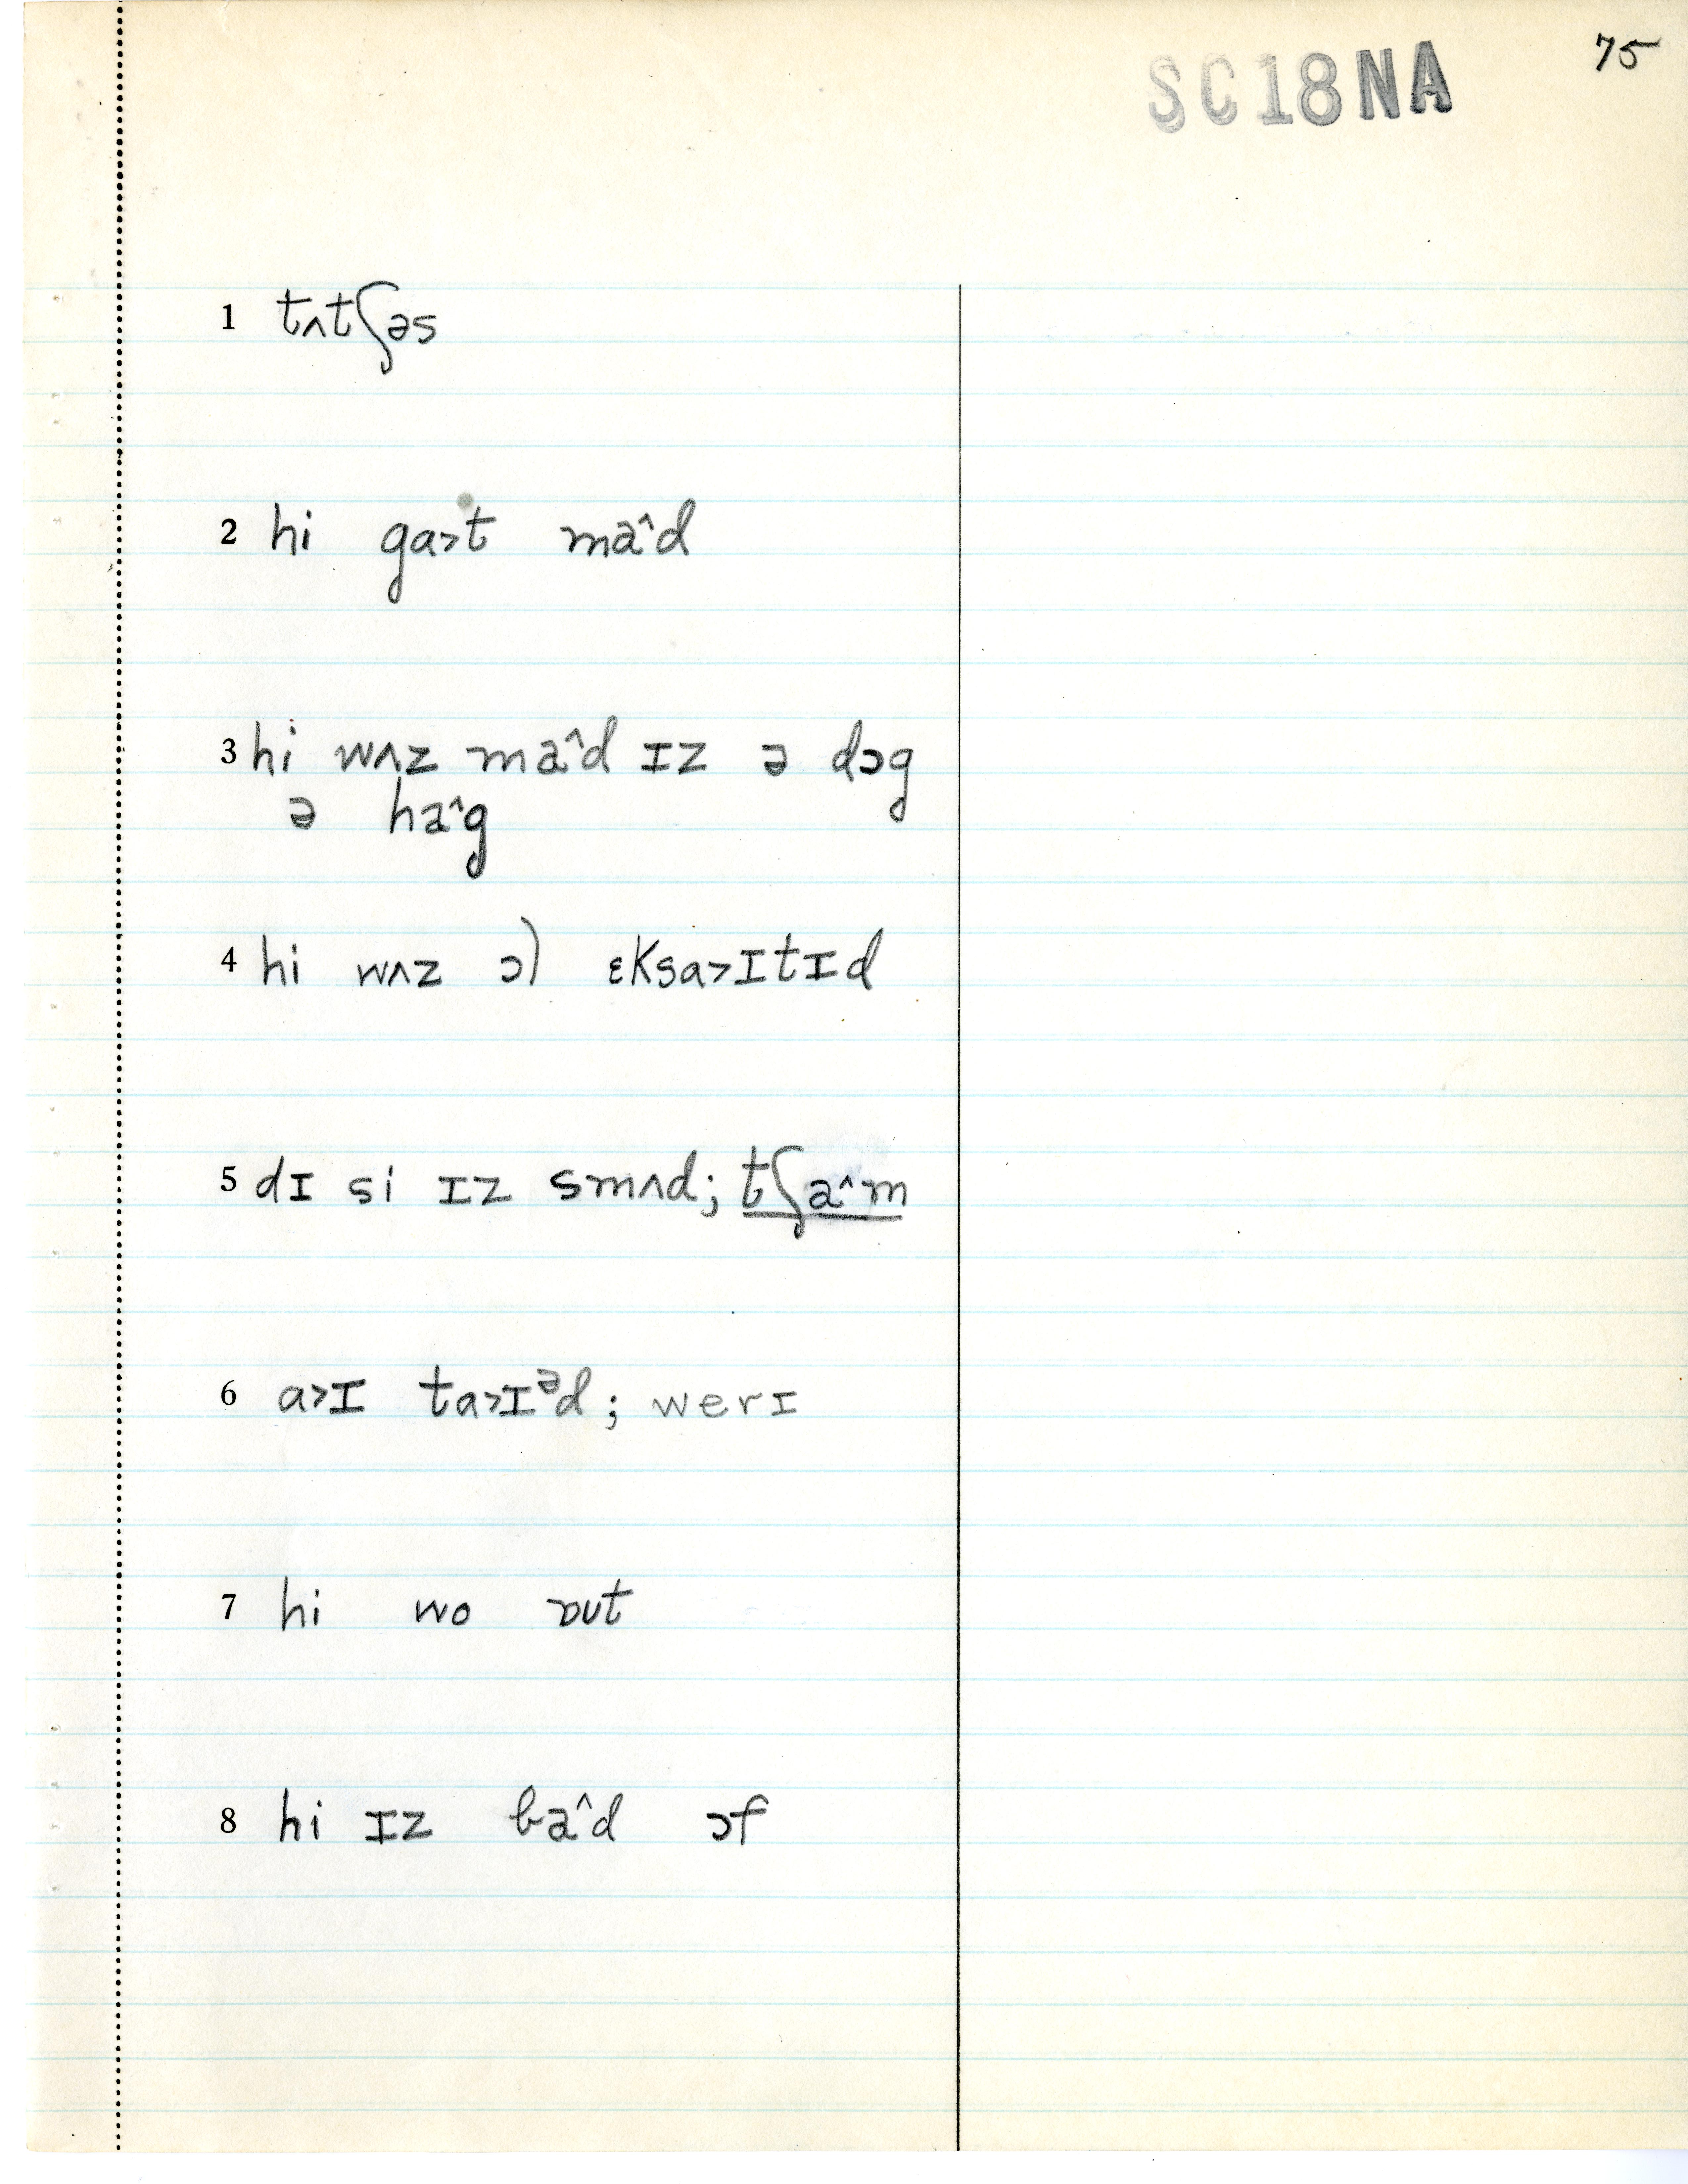 75
SC18NA
1 tʌtʃəs
2 hi ga>t ma^d
3 hi wʌz ma^d ɪz ə dɔg
ə ha^g
4 hi wʌz ɔl ɛksa>ɪtɪd
5 dɪ si ɪz smʌd; tʃa^m
6 a>ɪ ta>ɪᵊd; werɪ
7 hi wo ɒut
8 hi ɪz ba^d ɔf